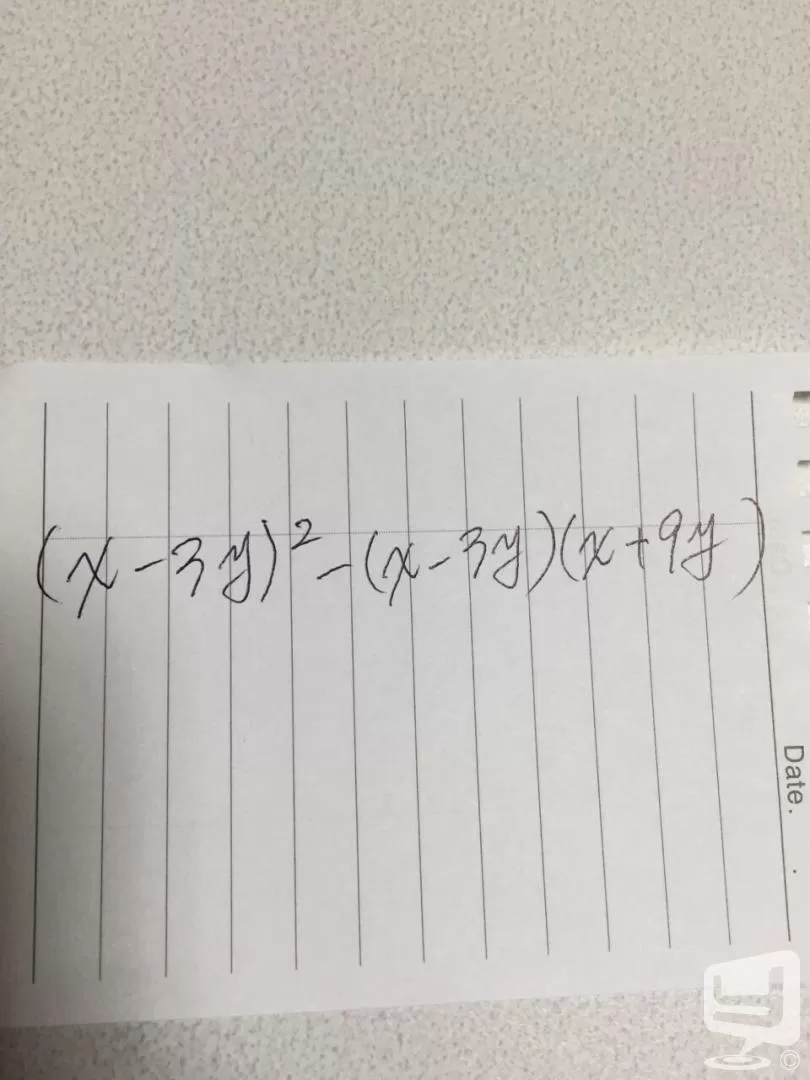 (x-3y)²-(x-3y)(x+9y)
Date. .